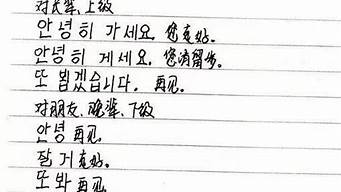 对长辈、上级
안녕히 가세요. 您走好.
안녕히 게세요. 您请留步.
또 뵙겠습니다. 再见.
对朋友、晚辈、下级
안녕 再见
잘 거 走好.
또 봐 再见.